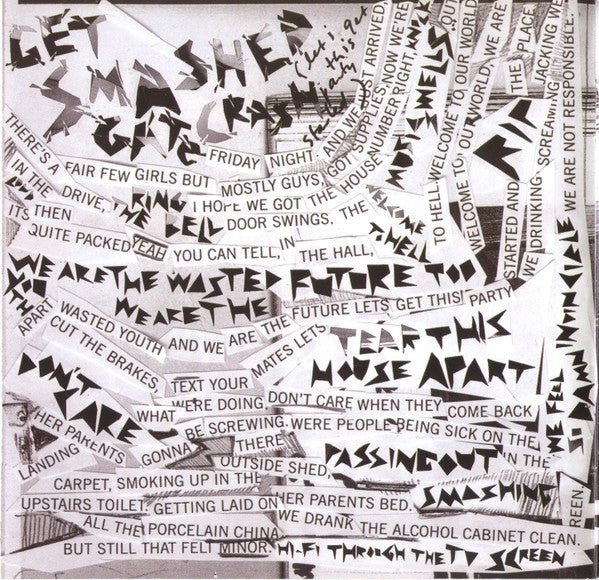 GET SMASHED
GATE CRASH
(let's get this party started
FRIDAY NIGHT AND WE JUST ARRIVED
THERE'S A FAIR FEW GIRLS BUT MOSTLY GUYS, GOT SUPPLIES, NOW WE'RE
IN THE DRIVE, I HOPE WE GOT THE HOUSE NUMBER RIGHT, KNOCK
RING THE BELL DOOR SWINGS. THE
MUSIC WELLS OUT
WELCOME TO OUR WORLD
TO HELL WELCOME TO OUR WORLD, WE ARE
THE PLACE
ITS THEN
QUITE PACKED YEAH YOU CAN TELL, IN THE HALL,
STARTED AND SCREAMING JACKING WE
WE DRINKING, WE ARE NOT RESPONSIBLE.
WE ARE THE WASTED FUTURE TOO
WE ARE THE FUTURE LETS GET THIS PARTY
WASTED YOUTH AND WE ARE THE
APART
CUT THE BRAKES, TEXT YOUR MATES LETS TEAR THIS
HOUSE APART
DON'T CARE WHAT WE'RE DOING DON'T CARE WHEN THEY COME BACK
WE FEEL SO DAMN INVINCIBLE
HER PARENTS GONNA BE SCREWING. WERE PEOPLE BEING SICK ON THE
LANDING THERE
OUTSIDE SHED PASSING OUT IN THE
CARPET, SMOKING UP IN THE
SMASHING
UPSTAIRS TOILET, GETTING LAID ON HER PARENTS BED.
ALL THE PORCELAIN CHINA WE DRANK THE ALCOHOL CABINET CLEAN.
BUT STILL THAT FELT MINOR. HI-FI THROUGH THE TV SCREEN